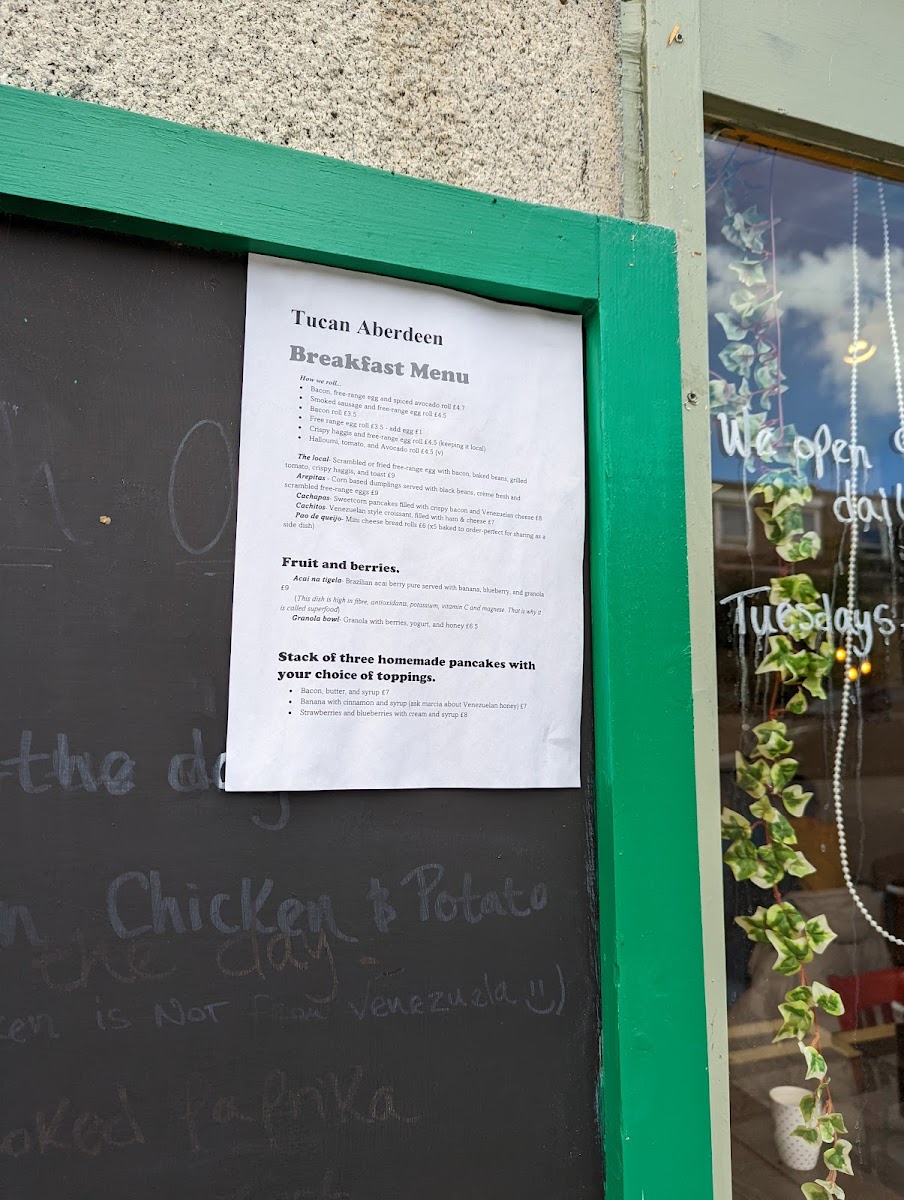 Tucan Aberdeen
Breakfast Menu
How we roll...
• Bacon, free-range egg and spiced avocado roll £4.7
• Smoked sausage and free-range egg roll £4.5
• Bacon roll £3.5
• Free range egg roll £3.5 - add egg £1
• Crispy haggis and free-range egg roll £4.5 (keeping it local)
• Halloumi, tomato, and Avocado roll £4.5 (v)
The local- Scrambled or fried free-range egg with bacon, baked beans, grilled
tomato, crispy haggis, and toast £9
Arepitas - Corn based dumplings served with black beans, crème fresh and
scrambled free-range eggs £9
Cachapas- Sweetcorn pancakes filled with crispy bacon and Venezuelan cheese £8
Cachitos- Venezuelan style croissant, filled with ham & cheese £7
Pao de queijo- Mini cheese bread rolls £6 (x5 baked to order-perfect for sharing as a
side dish)
Fruit and berries.
Acai na tigela- Brazilian acai berry pure served with banana, blueberry, and granola
£9
(This dish is high in fibre, antioxidants, potassium, vitamin C and magnese. That is why it
is called superfood)
Granola bowl- Granola with berries, yogurt, and honey £6.5
Stack of three homemade pancakes with
your choice of toppings.
• Bacon, butter, and syrup £7
• Banana with cinnamon and syrup (ask marcia about Venezuelan honey) £7
• Strawberries and blueberries with cream and syrup £8
the
Chicken & Potato
the day
is NOT from Venezuela :)
paprika
We open
daily
Tuesdays